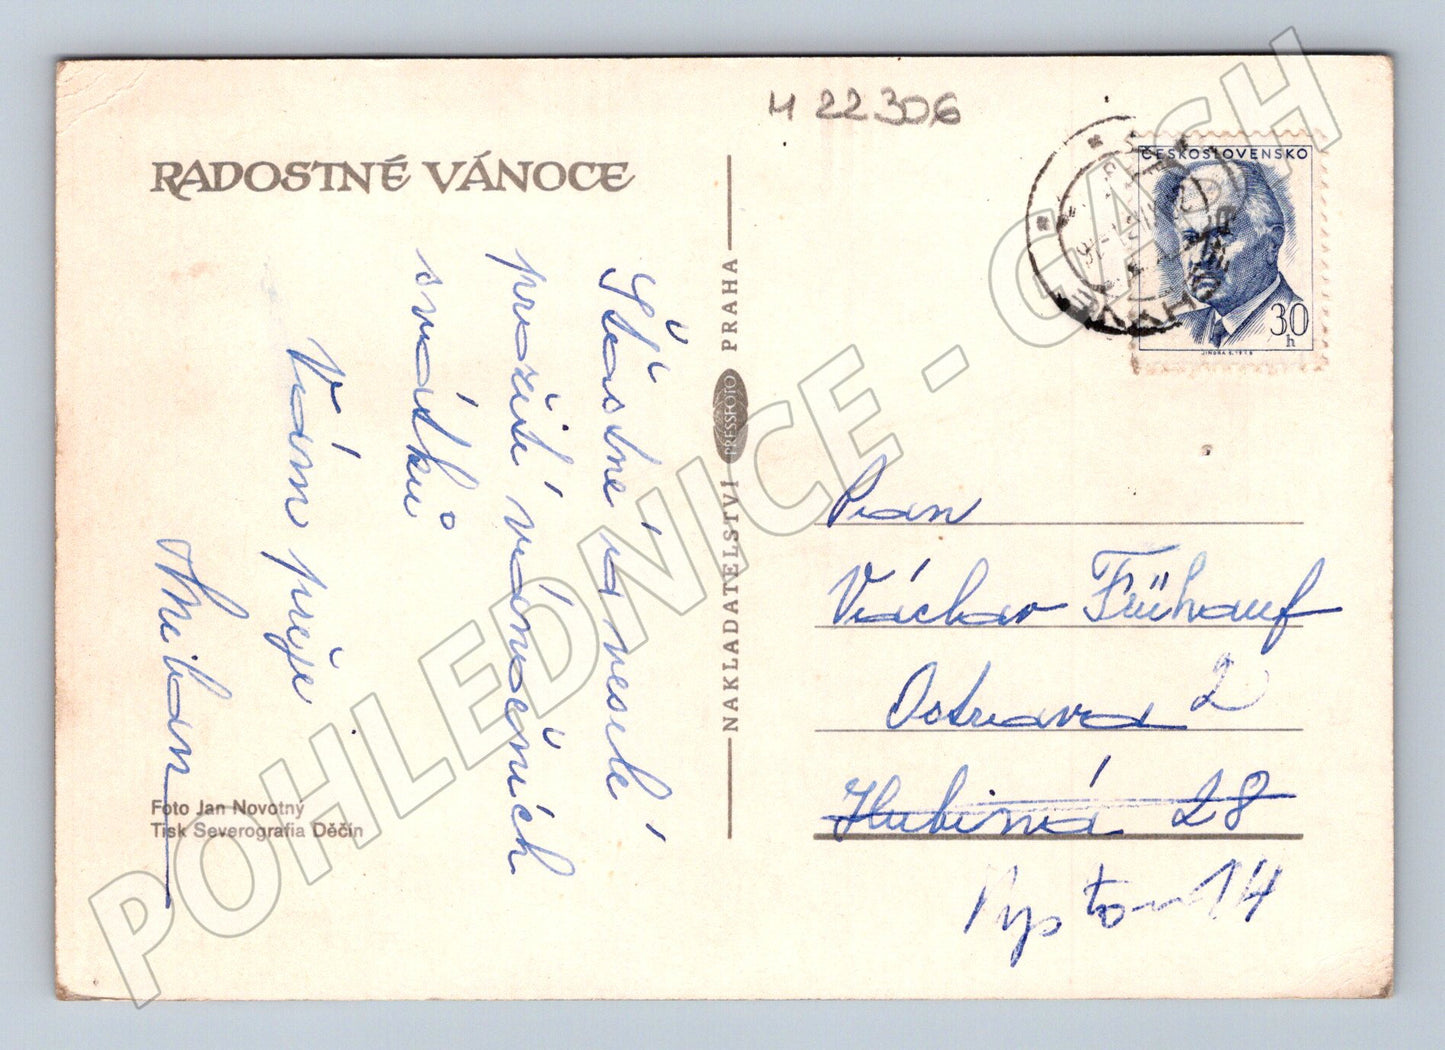 H 22306
RADOSTNÉ VÁNOCE
Šťastné a veselé
prožití vánočních
svátků
Vám přeje
Foto Jan Novotný
Tisk Severografia Děčín
NAKLADATELSTVÍ PRESSFOTO PRAHA
ČESKOSLOVENSKO
30
h
JINDRA S. 1975
Pan
Václav Frühauf
Ostrava 2
Hlubinná 28
14
POHLEDNICE - CASH